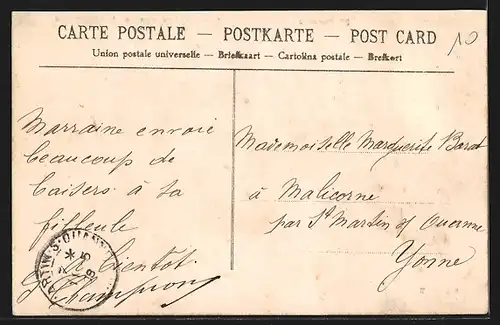 CARTE POSTALE — POSTKARTE — POST CARD
Union postale universelle — Briefkaart — Cartolina postale — Brefkort
10
Marraine envoie
beaucoup de
baisers à sa
filleule
A bientôt
G Champion
Mademoiselle Marguerite Barat
à Malicorne
par St Martin s/ Ouanne
Yonne